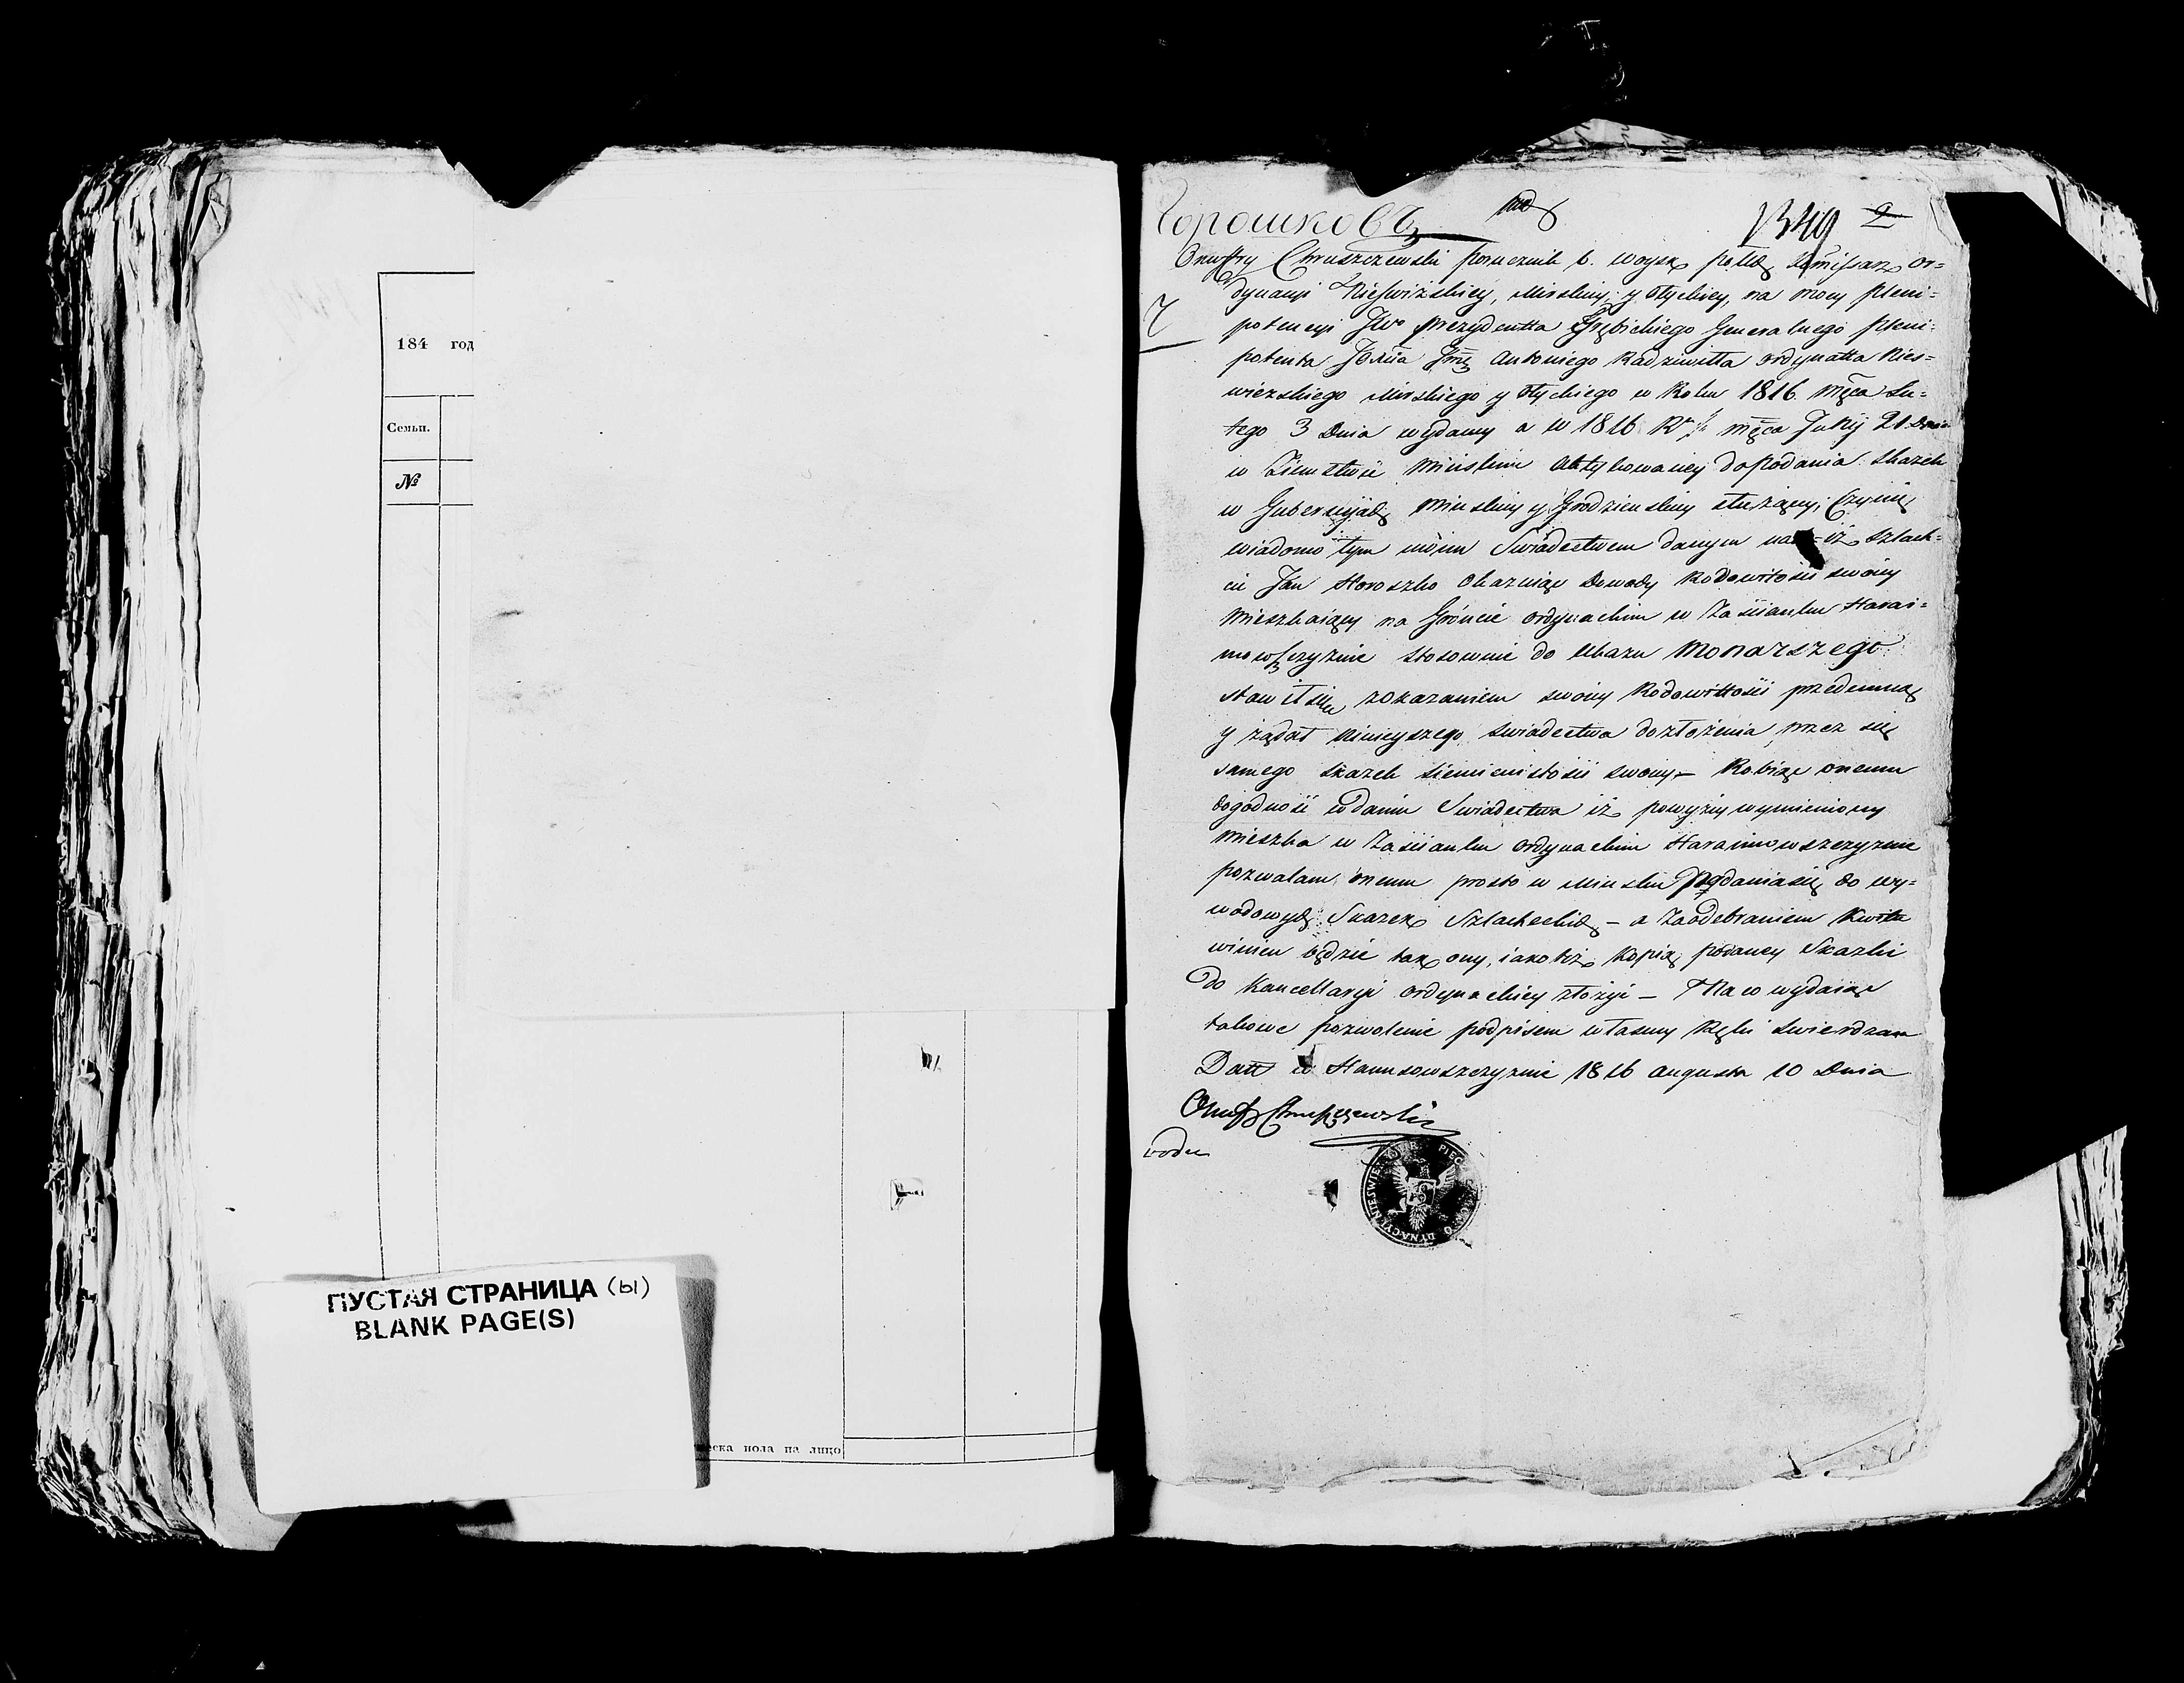 184 год
Семьи.
№
ПУСТАЯ СТРАНИЦА (ы)
BLANK PAGE(S)
ческа пола на лицо
Горошковъ
1349 2
Onuffry Chruszczewski porucznik b. woysk polich komissarz Or=
dynacyi Nieswizskiey, Mirskiey y Ołyckiey, na mocy pleni=
potencyi JWo prezydentta Grębickiego Generalnego pleni=
potenta Antoniego Radziwiłła ordynatta Nies=
wiezskiego Mirskiego y Ołyckiego w Roku 1816 mca Lu=
tego 3 Dnia wydaney a w 1816 Rku mca July 21 Dnia
w Ziemstwie Minskim Aktykowaney do podania skazek
w Gubernijach Minskiey y Grodzienskiey służącey, Czynię
wiadomo tym moim Swiadectwem danym iż szlach=
cic Jan Horoszko Okazuiąc Dowody Rodowitości swoiey
Mieszkaiący na Gróncie ordynackim w Zascianku Harai=
mowszczyznie stosownie do Ukazu Monarszego
stawił się z okazaniem swoiey Rodowittości przedemną
y żądał Ninieyszego swiadectwa do złożenia przez się
samego skazek siemienistości swoiey – Robiąc onemu
dogodność w daniu Swiadectwa iż powyżey wymieniony
Mieszka w Zascianku ordynackim Haraimowszczyznie
pozwalam onemu prosto w Minsku podania się do wy=
wodowych Skazek Szlacheckich – a za odebraniem Kwitu
winien będzie tak ony, iako też Kopią podaney Skazki
do Kancellaryi Ordynackiey złożyć – Na co wydaiąc
takowe pozwolenie podpisem własney Ręki stwierdzam
Datt w Hannsowszczyznie 1816 Augusta 10 Dnia
Onufry Chruszczewski